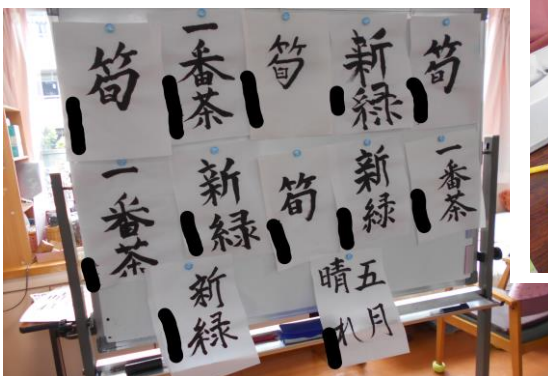 筍
一番茶
筍
新緑
筍
一番茶
新緑
筍
新緑
一番茶
新緑
五月
晴れ